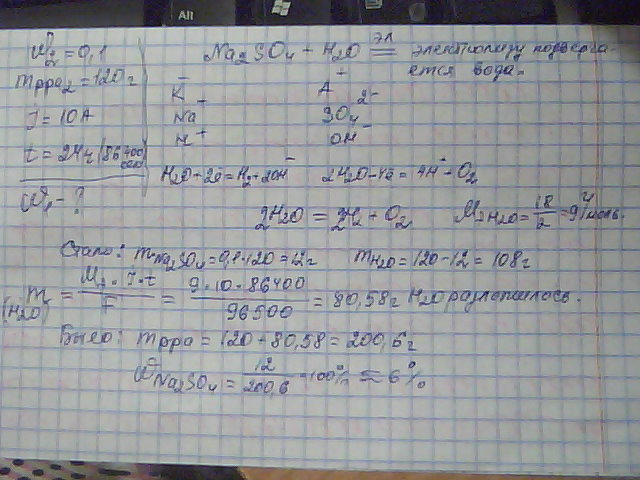 All
ω₂ = 0,1
m р-ра₂ = 120 г
J = 10 А
t = 24 ч (86400 сек)
ω₁ - ?
Na₂SO₄ + H₂O эл = электролизу подвергается вода.
K⁻ A⁺
Na⁺ SO₄²⁻
H⁺ OH⁻
H₂O + 2e = H₂ + 2OH⁻ 2H₂O - 4e = 4H⁺ + O₂
2H₂O = 2H₂ + O₂ Mэ H₂O = 18/2 = 9 г/моль.
Стало: m Na₂SO₄ = 0,1·120 = 12 г m H₂O = 120 - 12 = 108 г
m (H₂O) = Mэ · J · t / F = 9 · 10 · 86400 / 96500 = 80,58 г H₂O разложилось.
Было: m р-ра = 120 + 80,58 = 200,6 г
ω Na₂SO₄ = 12 / 200,6 · 100% = 6%